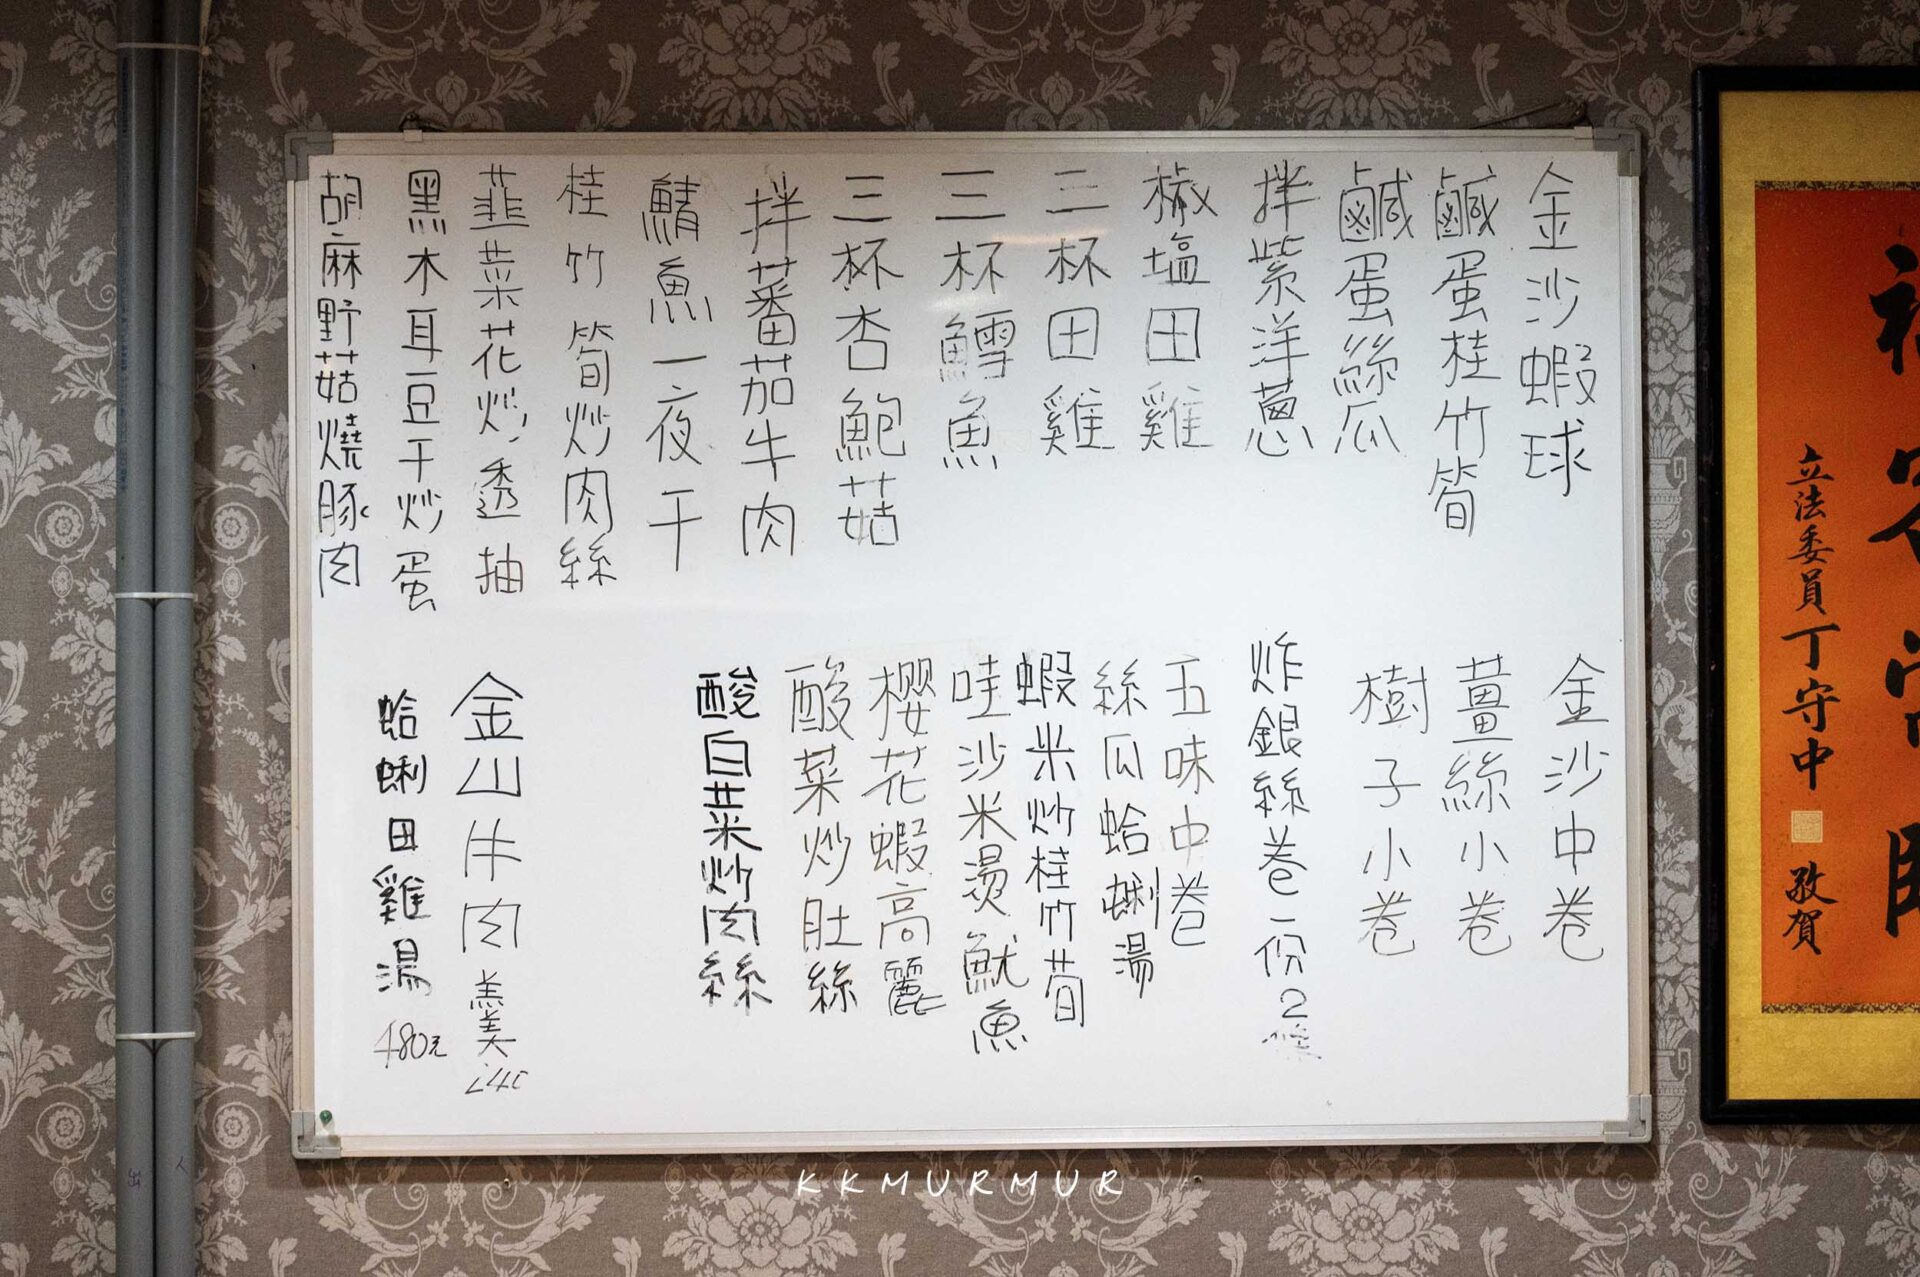 金沙蝦球
鹹蛋桂竹筍
鹹蛋絲瓜
拌紫洋蔥
椒塩田雞
三杯田雞
三杯鱈魚
三杯杏鮑菇
拌蕃茄牛肉
鯖魚一夜干
桂竹筍炒肉絲
韮菜花炒透抽
黑木耳豆干炒蛋
胡麻野菇燒豚肉
金沙中卷
薑絲小卷
樹子小卷
炸銀絲卷一份2條
五味中卷
絲瓜蛤蜊湯
蝦米炒桂竹筍
哇沙米燙魷魚
櫻花蝦高麗
酸菜炒肚絲
酸白菜炒肉絲
金山牛肉羹
蛤蜊田雞湯 480元
立法委員丁守中 敬賀
KKMURMUR